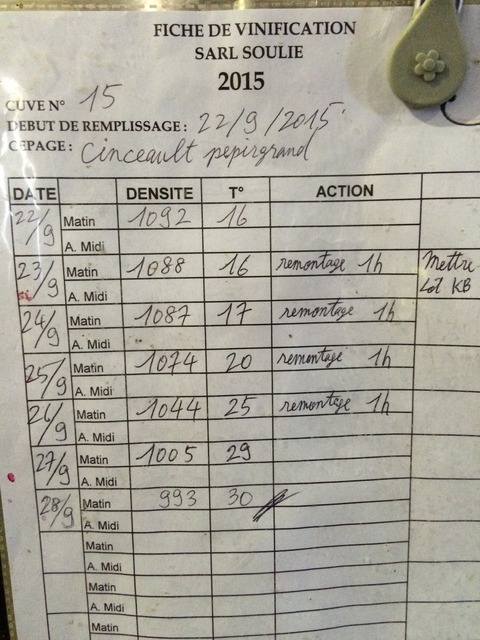 FICHE DE VINIFICATION
SARL SOULIE
2015
CUVE N° 15
DEBUT DE REMPLISSAGE : 22/9/2015
CEPAGE : Cinceault pepirgrand
DATE DENSITE T° ACTION
22/9 Matin 1092 16
A. Midi
23/9 Matin 1088 16 remontage 1h Mettre
A. Midi Lot KB
24/9 Matin 1087 17 remontage 1h
A. Midi
25/9 Matin 1074 20 remontage 1h
A. Midi
26/9 Matin 1044 25 remontage 1h
A. Midi
27/9 Matin 1005 29
A. Midi
28/9 Matin 993 30
A. Midi
Matin
A. Midi
Matin
A. Midi
Matin